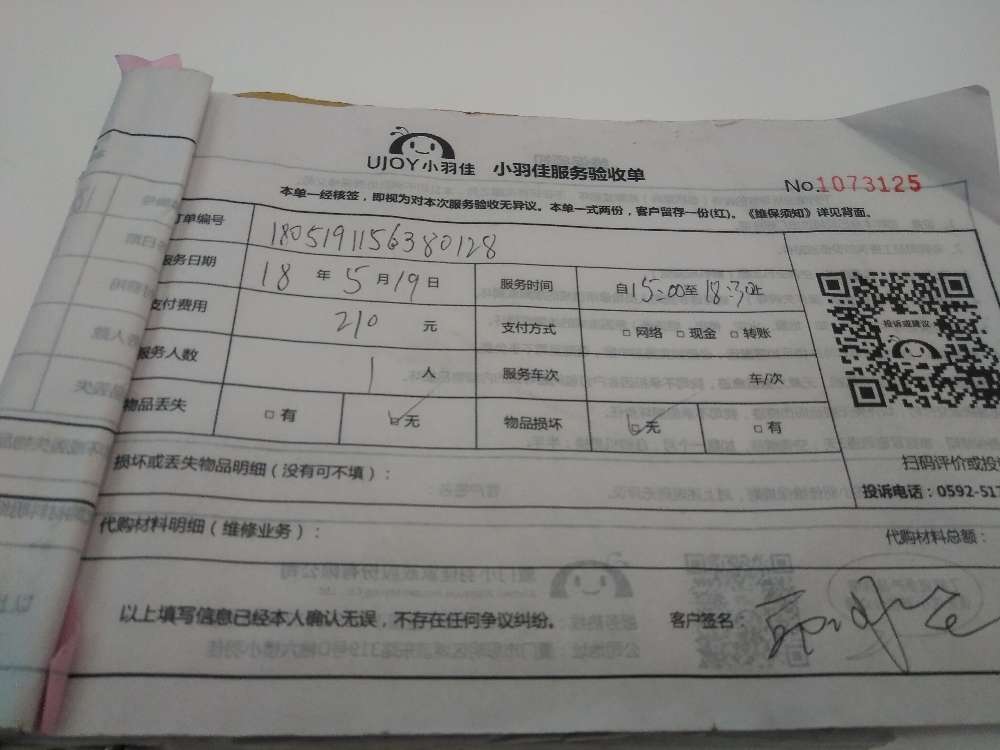 UJOY小羽佳 小羽佳服务验收单
No.1073125
本单一经核签，即视为对本次服务验收无异议。本单一式两份，客户留存一份(红)。《维保须知》详见背面。
订单编号 1805191156380128
服务日期 18 年 5 月 19 日 服务时间 自15:00至18:30止
支付费用 210 元 支付方式 □ 网络 □ 现金 □ 转账
服务人数 1 人 服务车次 车/次
物品丢失 □ 有 ☑ 无 物品损坏 ☑ 无 □ 有
投诉或建议
损坏或丢失物品明细（没有可不填）：
扫码评价或投
投诉电话：0592-517
代购材料明细（维修业务）：
代购材料总额：
以上填写信息已经本人确认无误，不存在任何争议纠纷。 客户签名